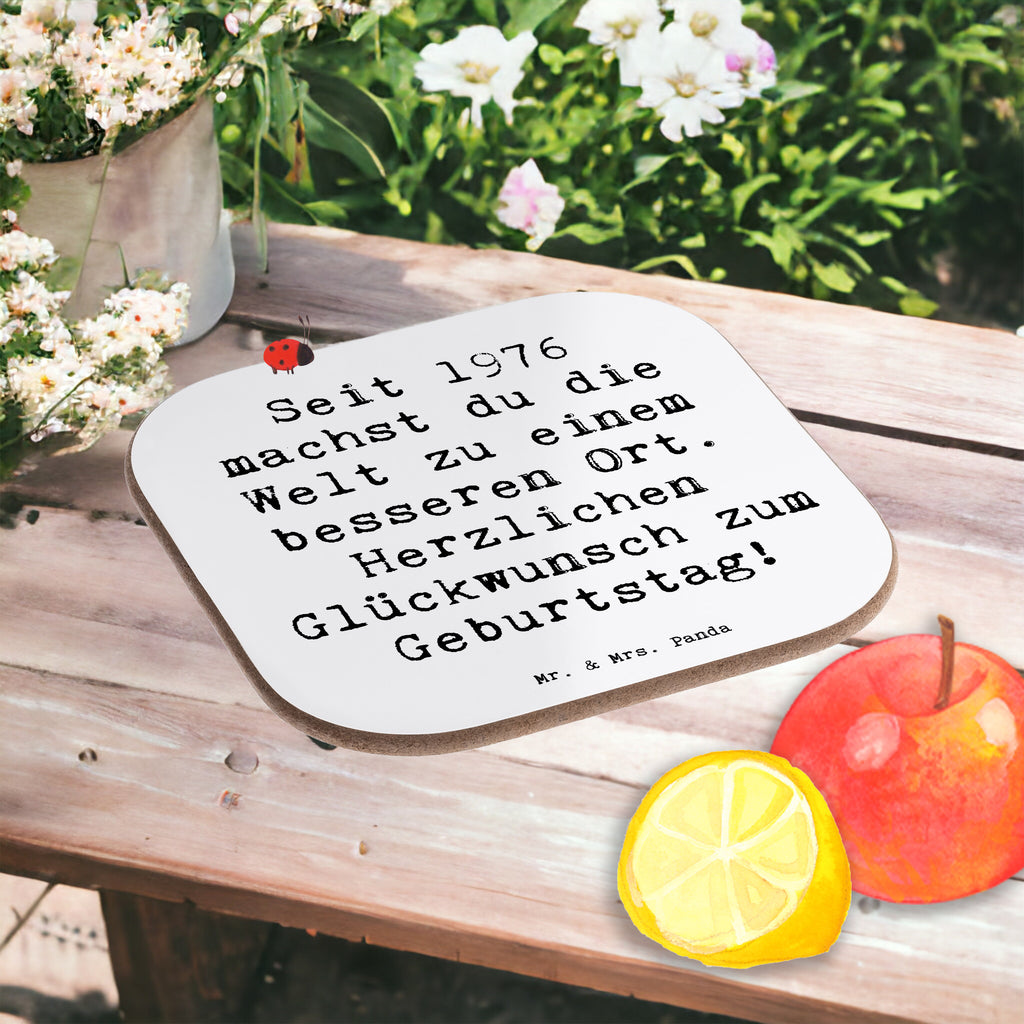 Seit 1976
machst du die
Welt zu einem
besseren Ort.
Herzlichen
Glückwunsch zum
Geburtstag!
Mr. & Mrs. Panda